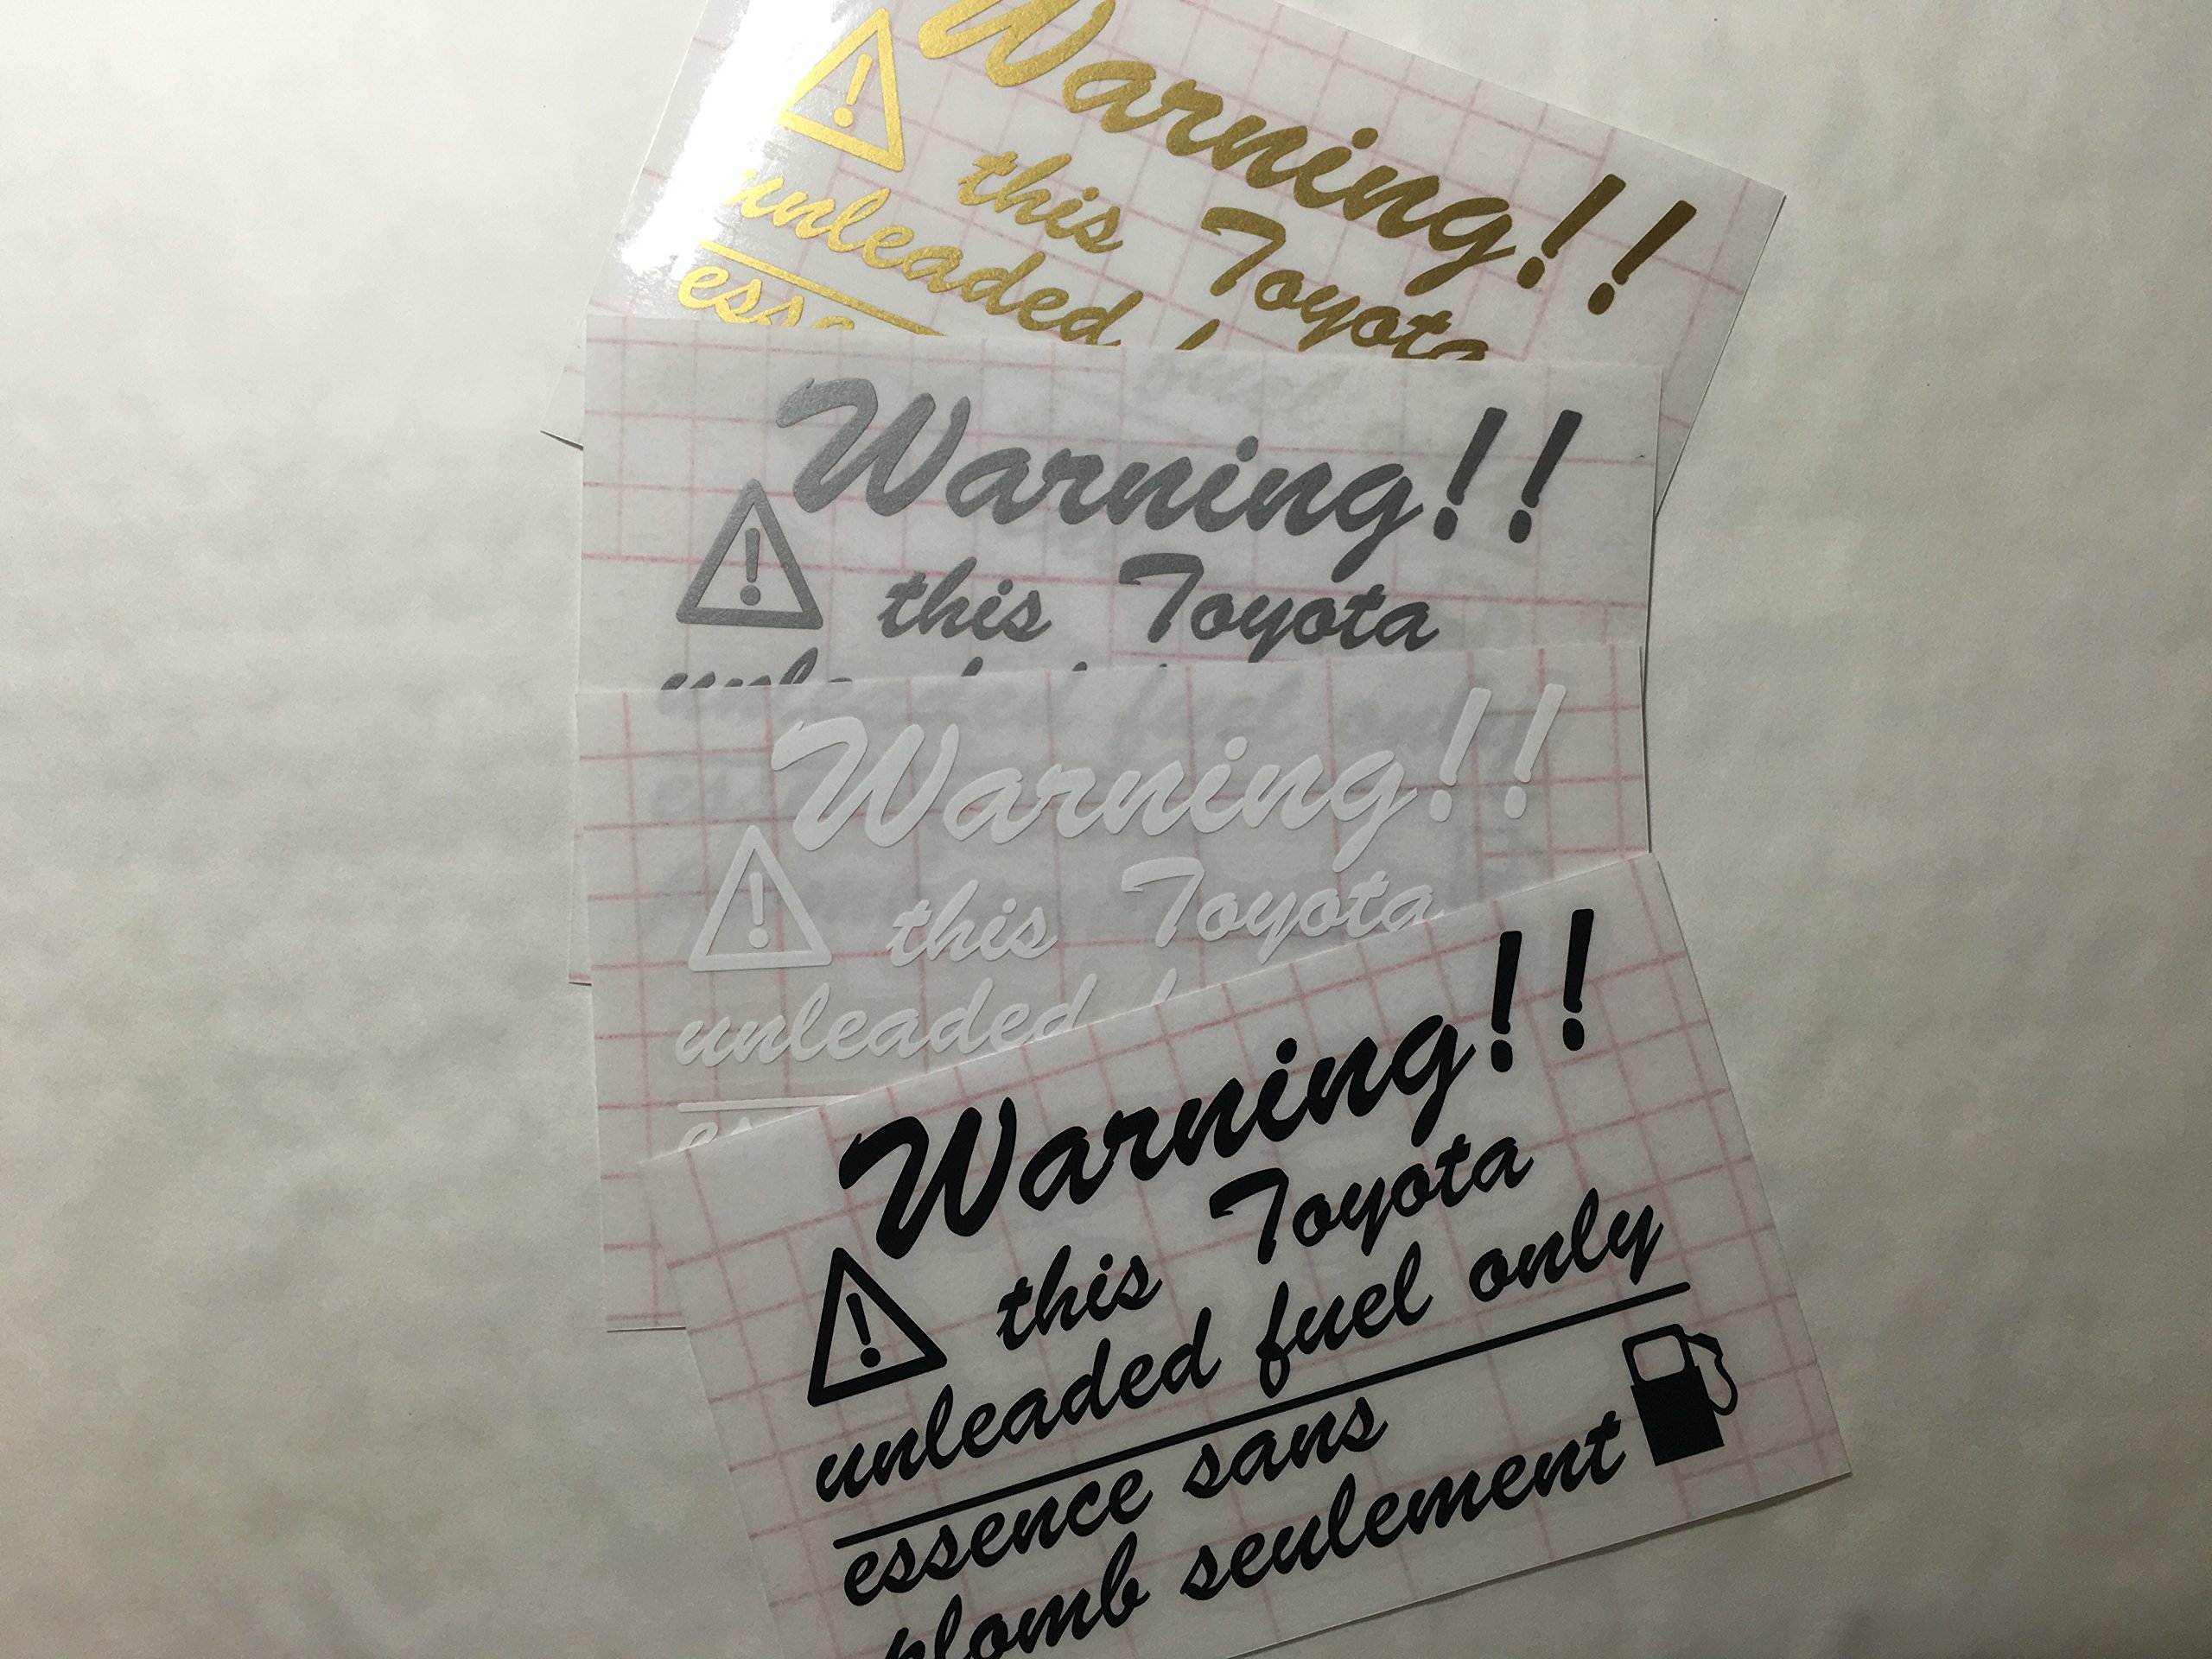 Warning!!
this Toyota
unleaded
Warning!!
this Toyota
Warning!!
this Toyota
unleaded
Warning!!
this Toyota
unleaded fuel only
essence sans
plomb seulement